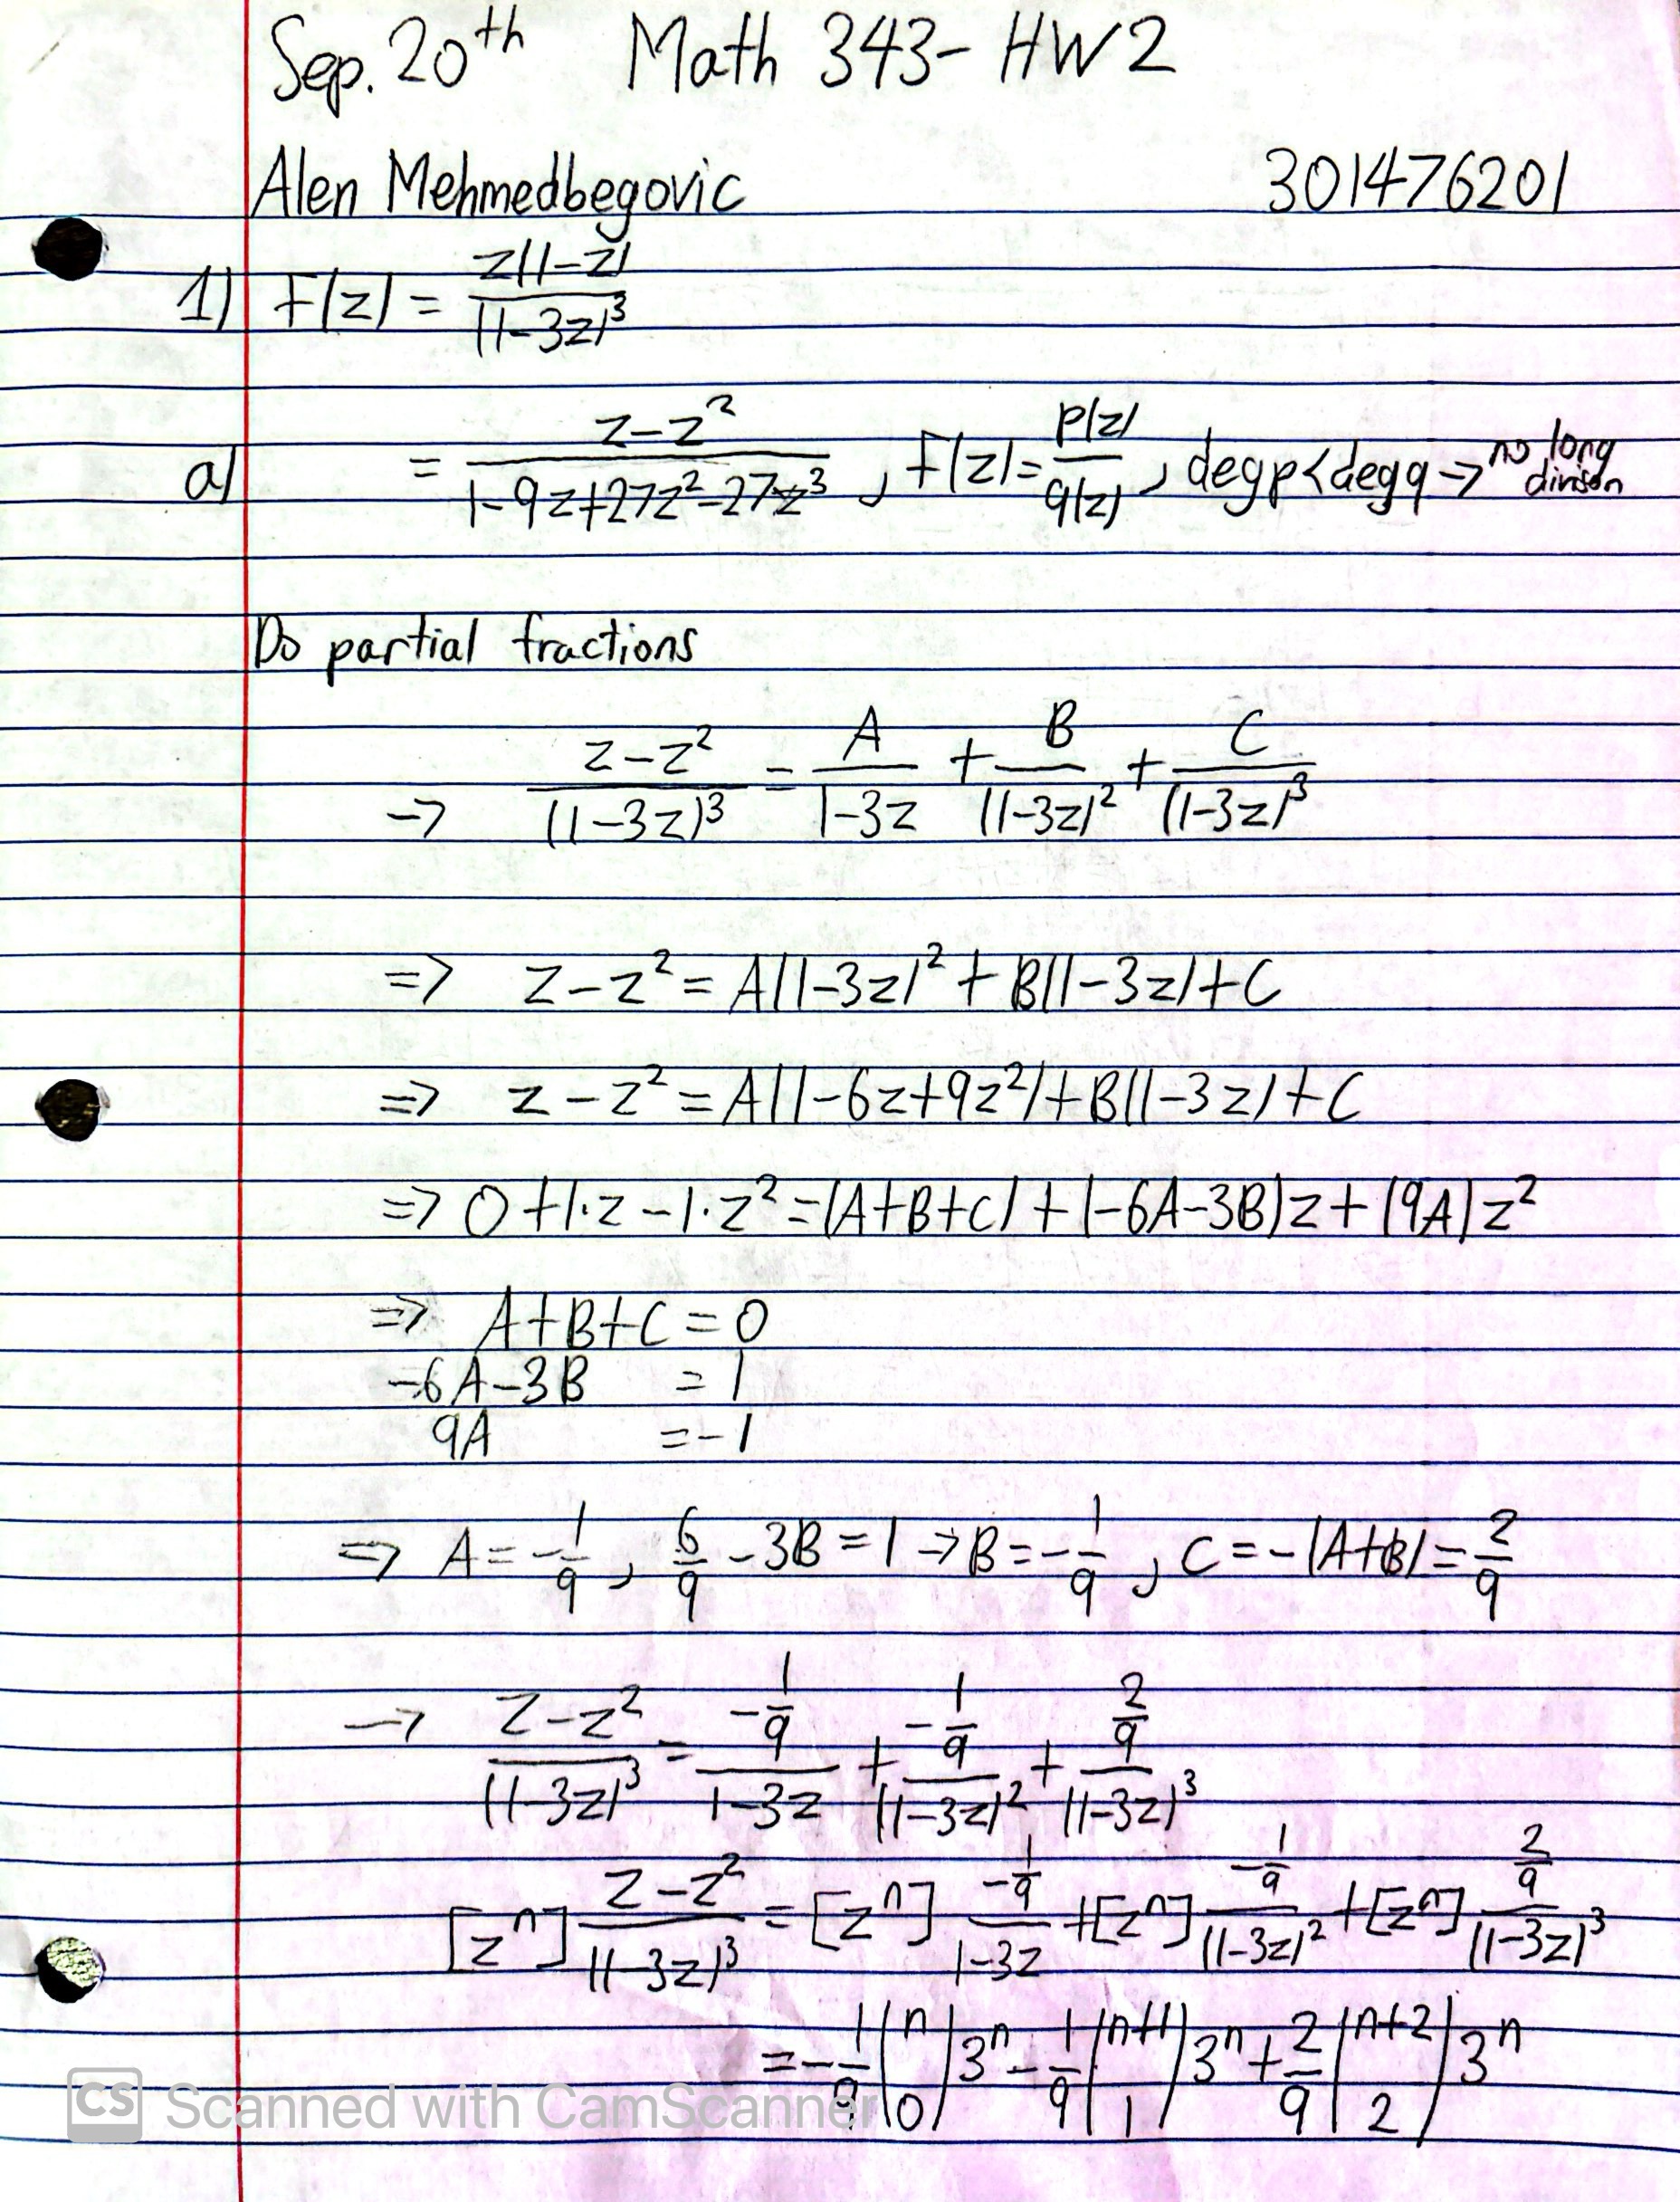 Sep. 20th Math 343 - HW2
Alen Mehmedbegovic 301476201
1) F(z) = z(1-z)/(1-3z)^3
a) = (z-z^2)/(1-9z+27z^2-27z^3), F(z) = p(z)/q(z), deg p < deg q → no long divison
Do partial fractions
→ (z-z^2)/(1-3z)^3 = A/(1-3z) + B/(1-3z)^2 + C/(1-3z)^3
=> z-z^2 = A(1-3z)^2 + B(1-3z) + C
=> z-z^2 = A(1-6z+9z^2) + B(1-3z) + C
=> 0+1·z-1·z^2 = (A+B+C) + (-6A-3B)z + (9A)z^2
=> A+B+C = 0
-6A-3B = 1
9A = -1
=> A = -1/9, 6/9 - 3B = 1 → B = -1/9, C = -(A+B) = 2/9
→ (z-z^2)/(1-3z)^3 = (-1/9)/(1-3z) + (-1/9)/(1-3z)^2 + (2/9)/(1-3z)^3
[z^n] (z-z^2)/(1-3z)^3 = [z^n] (-1/9)/(1-3z) + [z^n] (-1/9)/(1-3z)^2 + [z^n] (2/9)/(1-3z)^3
= -1/9 (n 0) 3^n - 1/9 (n+1 1) 3^n + 2/9 (n+2 2) 3^n
CS Scanned with CamScanner